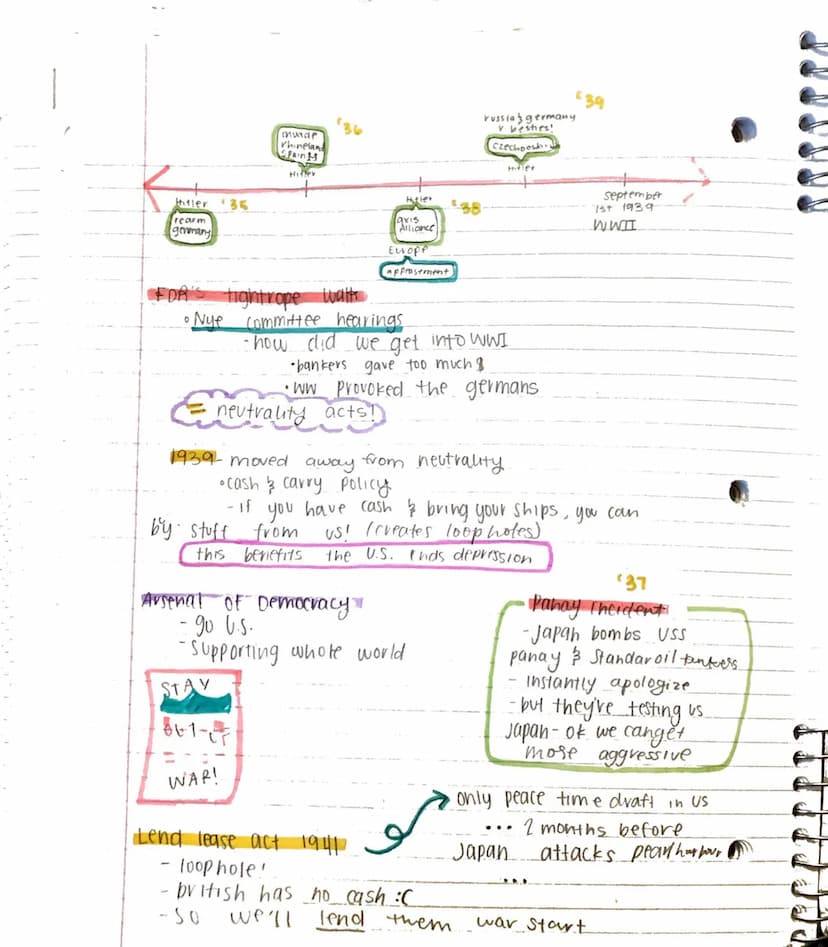 '39
russia & germany
r besties!
'36
invade
rhineland
Spain
Hitler
Hitler
Hitler '35
rearm
germany
Hitler '38
axis
Alliance
Europe
appeasement
September
1st 1939
WWII
FDR's tightrope walk
Nye committee hearings
- how did we get into WWI
• bankers gave too much $
• WW provoked the germans
= neutrality acts!
1939 - moved away from neutrality
• cash & carry policy
- if you have cash & bring your ships, you can
by stuff from us! (creates loopholes)
this benefits the U.S. ends depression
'37
Arsenal of Democracy
- go U.S.
- supporting whole world
Panay incident
- Japan bombs USS
panay & Standar oil tankers
- instantly apologize
- but they're testing us
Japan - ok we can get
more aggressive
STAY
WAR!
only peace time draft in US
... 2 months before
Japan attacks pearl harbour
...
Lend lease act 1941
- loophole!
- british has no cash :C
- so we'll lend them war start